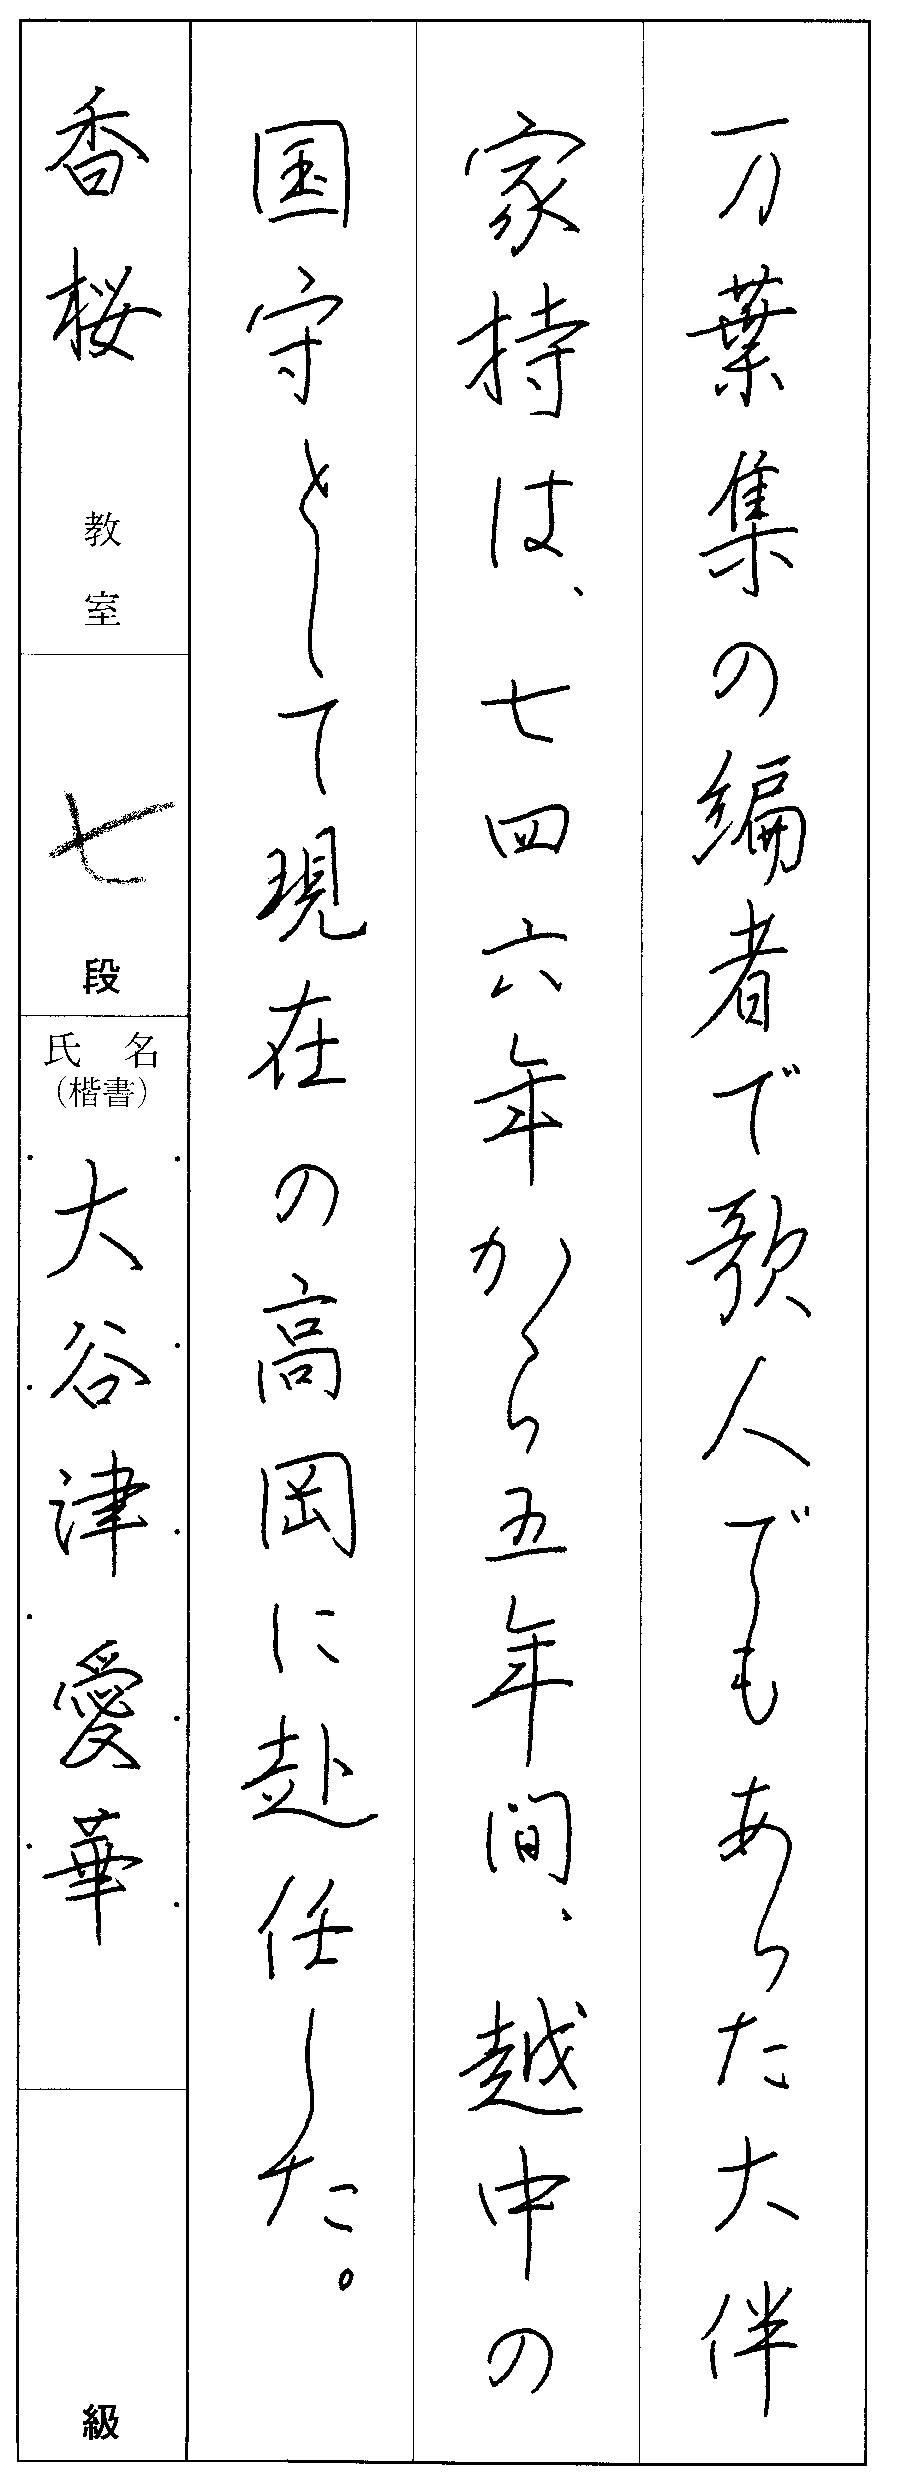 万葉集の編者で歌人でもあった大伴
家持は、七四六年から五年間、越中の
国守として現在の高岡に赴任した。
香桜 教室
七 段
氏名
(楷書)
大谷津愛華
級